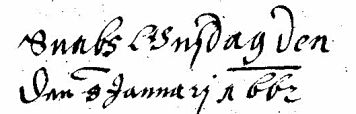 Snabs Onsdagh den
den 8 Januarij 1662